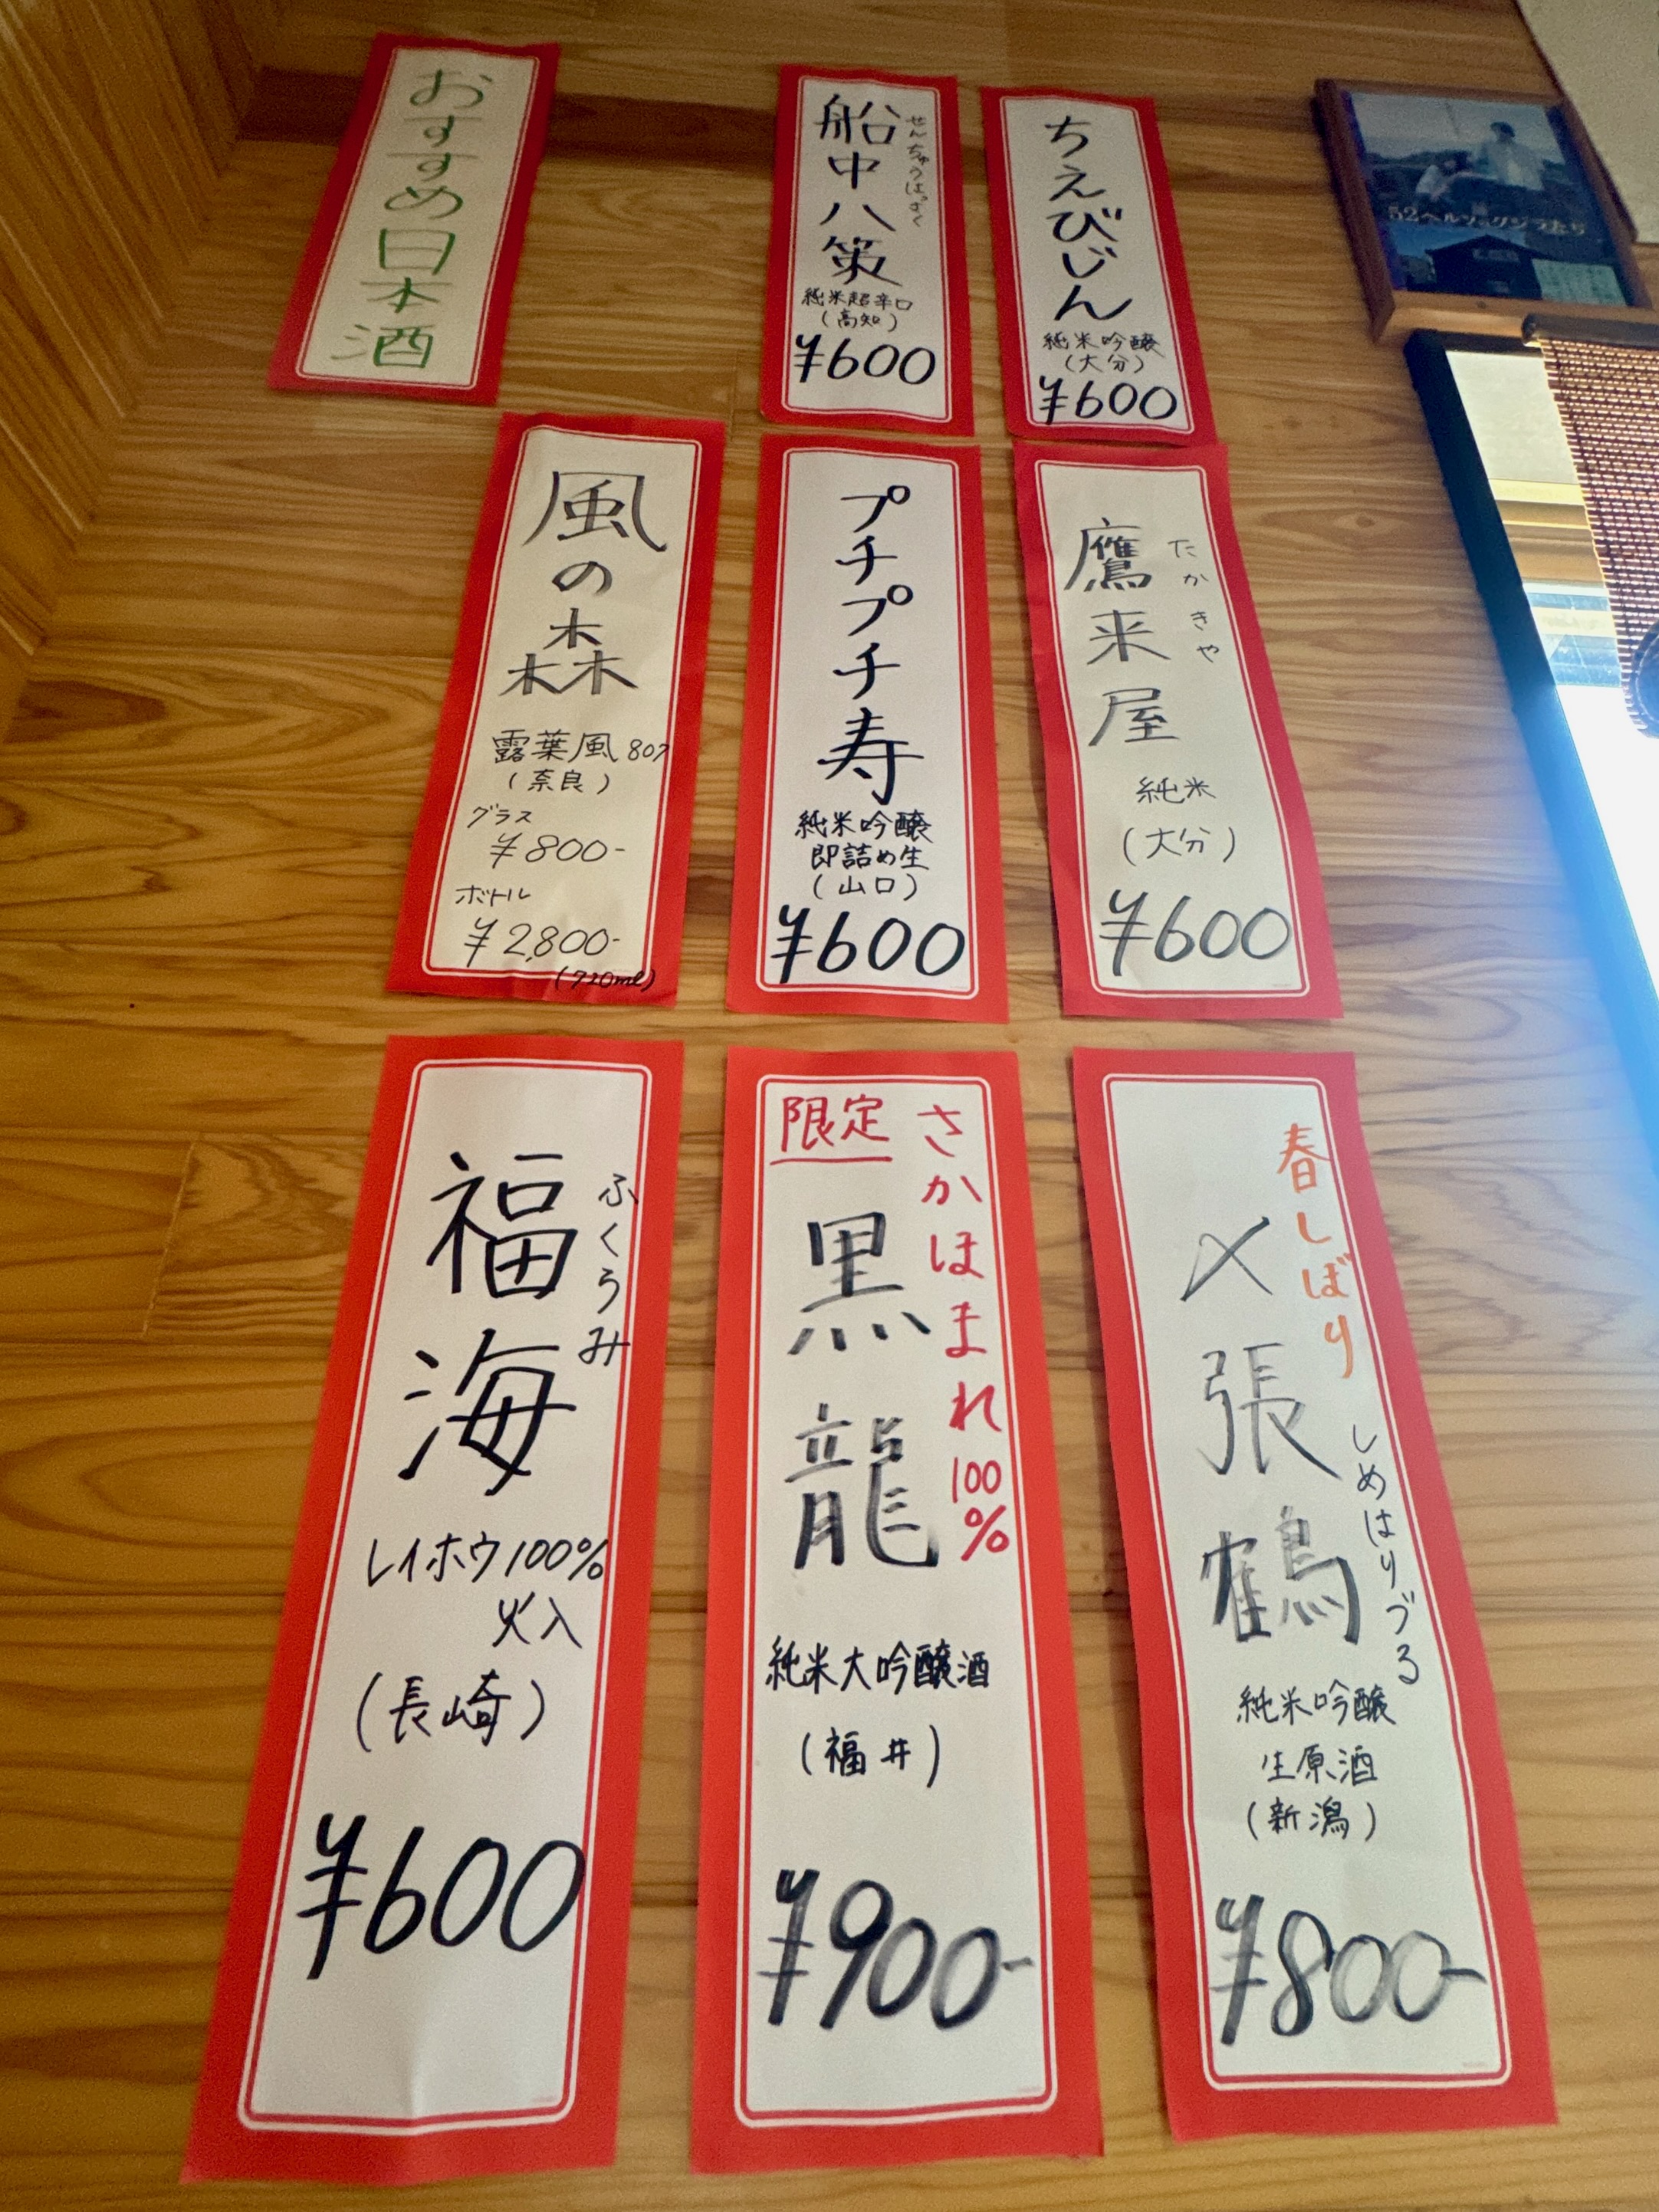 おすすめ日本酒
船中八策
せんちゅうはっさく
純米超辛口
(高知)
¥600
ちえびじん
純米吟醸
(大分)
¥600
52ヘルツのクジラたち
風の森
露葉風 807
(奈良)
グラス
¥800-
ボトル
¥2,800-
(720ml)
プチプチ寿
純米吟醸
即詰め生
(山口)
¥600
鷹来屋
たかきや
純米
(大分)
¥600
福海
ふくうみ
レイホウ100%
火入
(長崎)
¥600
限定
さかほまれ100%
黒龍
純米大吟醸酒
(福井)
¥900-
春しぼり
〆張鶴
しめはりづる
純米吟醸
生原酒
(新潟)
¥800-